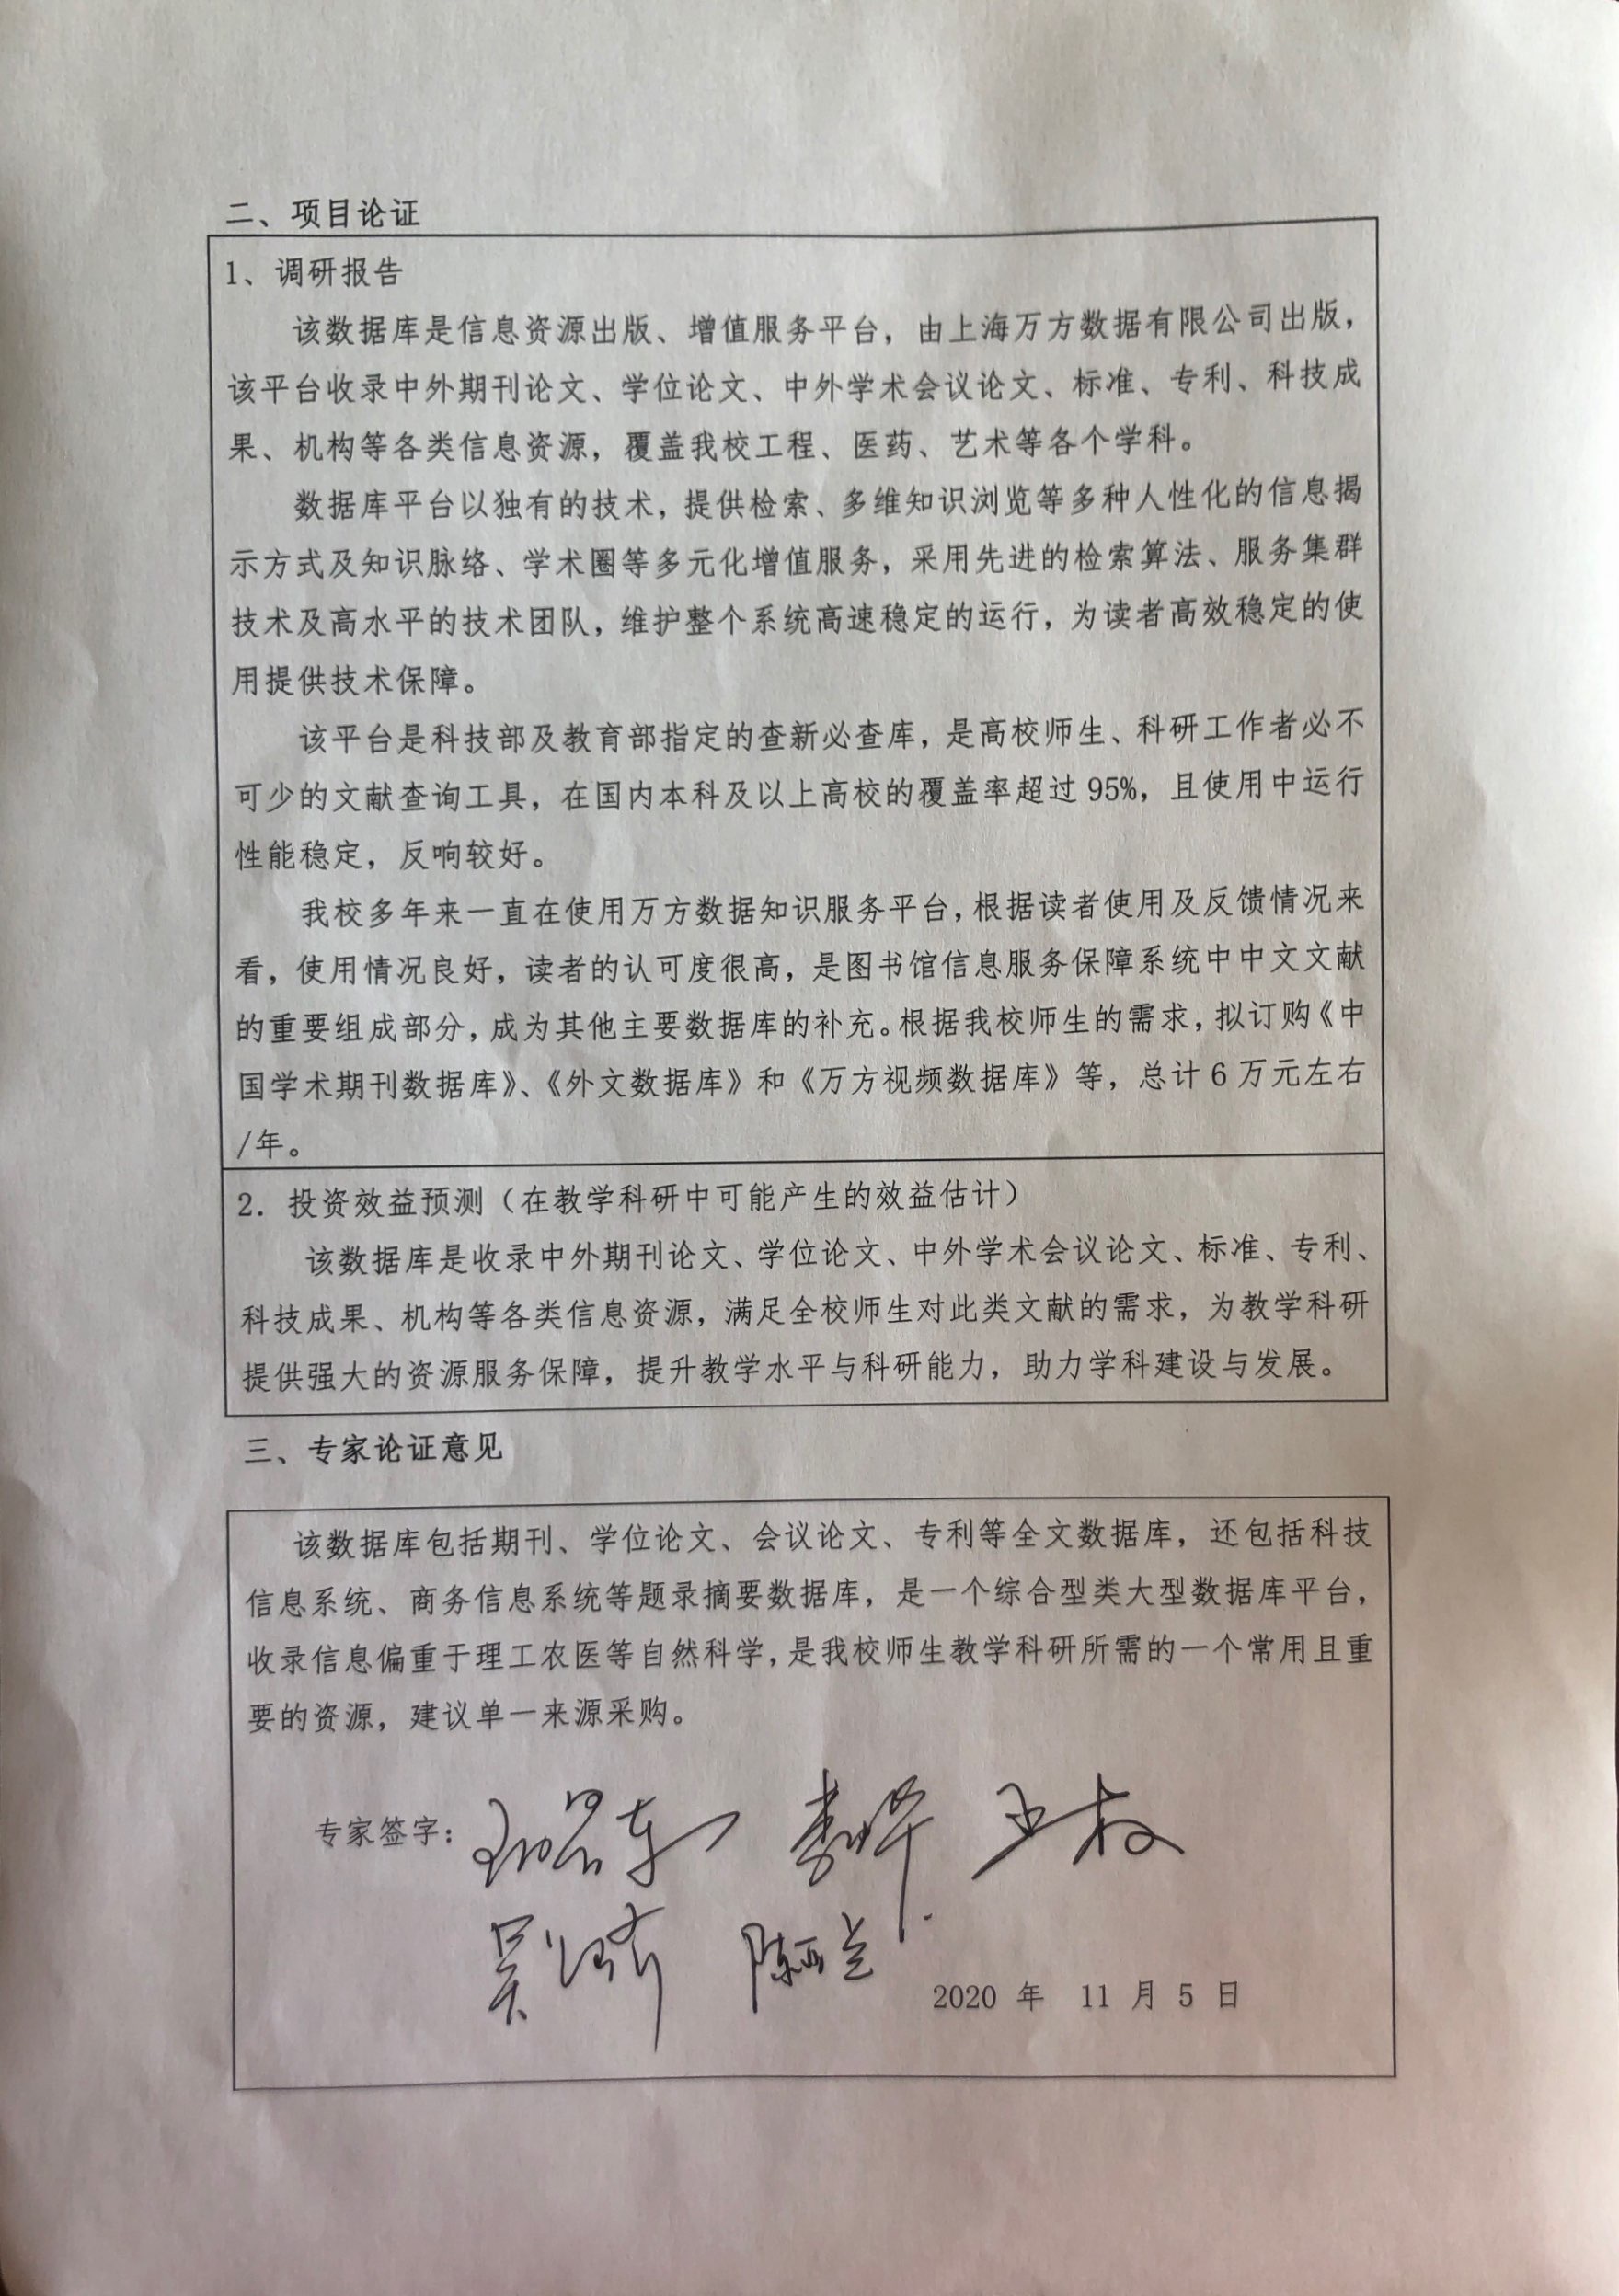 二、项目论证
1、调研报告
该数据库是信息资源出版、增值服务平台，由上海万方数据有限公司出版，
该平台收录中外期刊论文、学位论文、中外学术会议论文、标准、专利、科技成
果、机构等各类信息资源，覆盖我校工程、医药、艺术等各个学科。
数据库平台以独有的技术，提供检索、多维知识浏览等多种人性化的信息揭
示方式及知识脉络、学术圈等多元化增值服务，采用先进的检索算法、服务集群
技术及高水平的技术团队，维护整个系统高速稳定的运行，为读者高效稳定的使
用提供技术保障。
该平台是科技部及教育部指定的查新必查库，是高校师生、科研工作者必不
可少的文献查询工具，在国内本科及以上高校的覆盖率超过 95%，且使用中运行
性能稳定，反响较好。
我校多年来一直在使用万方数据知识服务平台，根据读者使用及反馈情况来
看，使用情况良好，读者的认可度很高，是图书馆信息服务保障系统中中文文献
的重要组成部分，成为其他主要数据库的补充。根据我校师生的需求，拟订购《中
国学术期刊数据库》、《外文数据库》和《万方视频数据库》等，总计 6 万元左右
/年。
2. 投资效益预测（在教学科研中可能产生的效益估计）
该数据库是收录中外期刊论文、学位论文、中外学术会议论文、标准、专利、
科技成果、机构等各类信息资源，满足全校师生对此类文献的需求，为教学科研
提供强大的资源服务保障，提升教学水平与科研能力，助力学科建设与发展。
三、专家论证意见
该数据库包括期刊、学位论文、会议论文、专利等全文数据库，还包括科技
信息系统、商务信息系统等题录摘要数据库，是一个综合型类大型数据库平台，
收录信息偏重于理工农医等自然科学，是我校师生教学科研所需的一个常用且重
要的资源，建议单一来源采购。
专家签字：
陈亚兰
2020 年 11 月 5 日